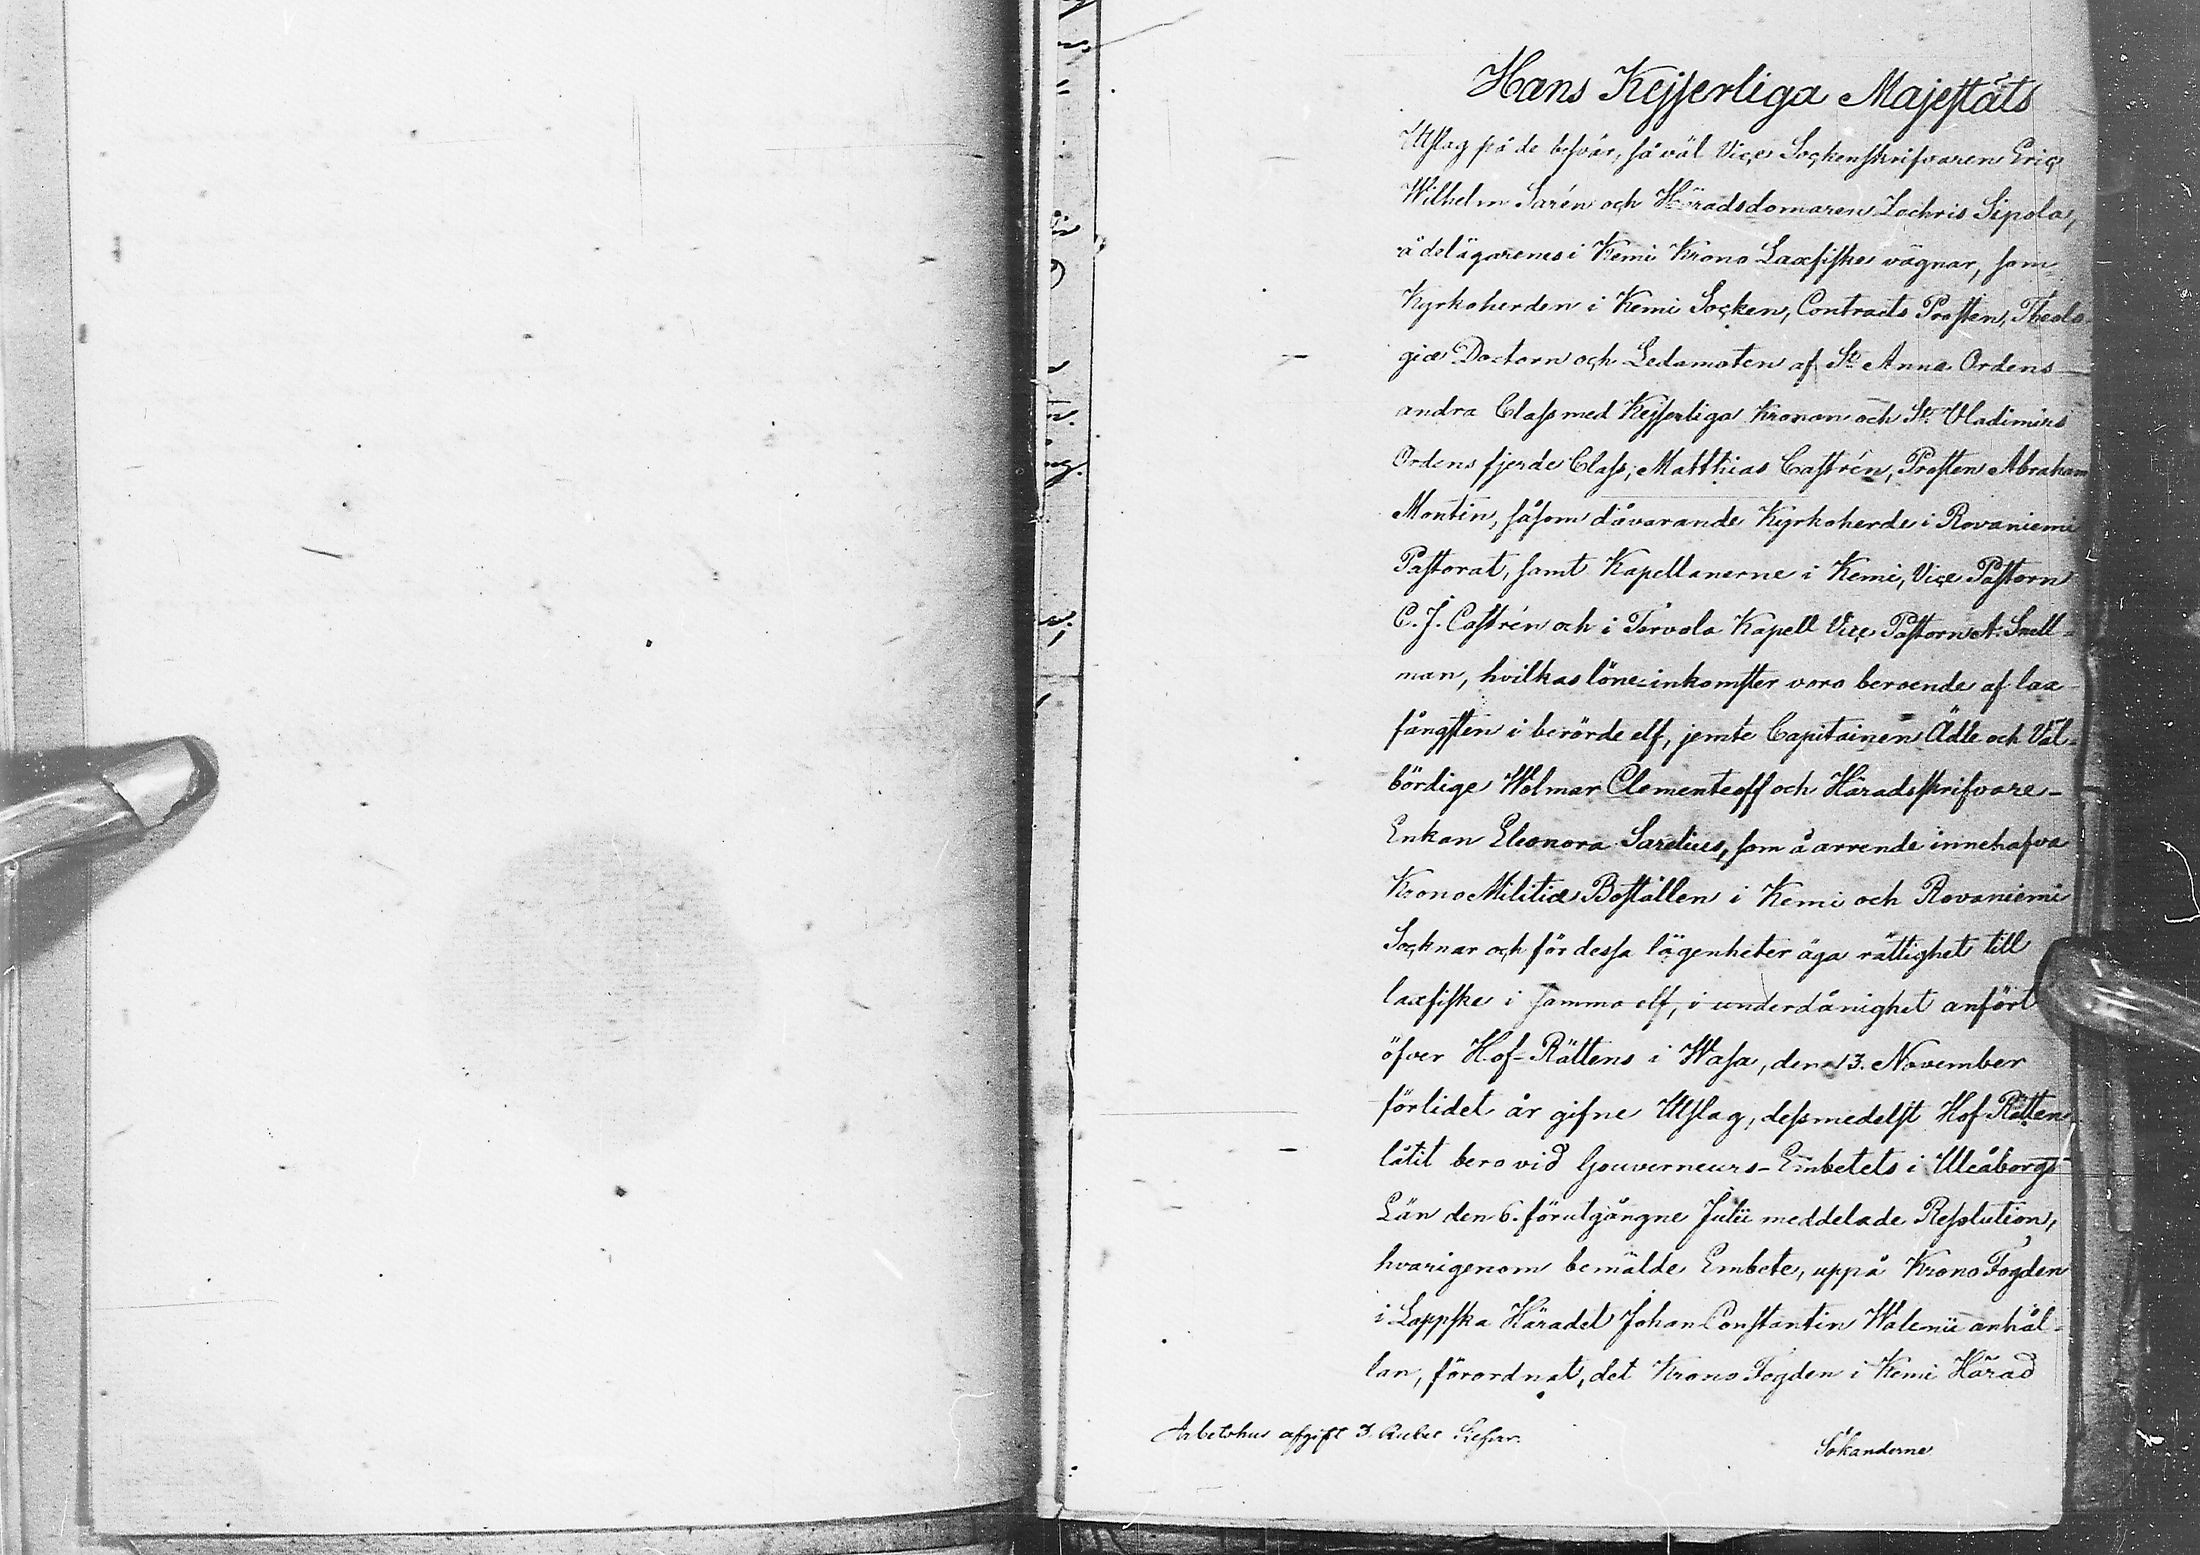 Hans Kejserliga Majestäts
Utslag på de besvär, så väl Vice Sockenskrifvaren Eric
Wilhelm Sarén och Häradsdomaren Zachris Sipola,
å delägarenes i Kemi Krono Laxfiske vägnar, som
Kyrkoherden i Kemi Socken, Contracts Prosten, Theolo
giæ Doctorn och Ledamoten af St. Annæ Ordens
andra Class med Kejserliga Kronan och St. Vladimirs
Ordens fjerde Class, Matthias Castrén, Prosten Abraham
Montin, såsom dåvarande Kyrkoherde i Rovaniemi
Pastorat, samt Kapellanerne i Kemi, Vice Pastorn
C. J. Castrén och i Tervola Kapell Vice Pastorn A. Snell-
man, hvilkas löne-inkomster voro beroende af lax-
fångsten i berörde elf, jemte Capitainen Ädle och Väl-
bördige Wolmar Clementeoff och Häradsskrifvare-
Enkan Eleonora Sarelius, som å arrende innehafva
Krono Militiæ Boställen i Kemi och Rovaniemi
Socknar och för dessa lägenheter äga rättighet till
laxfiske i samma elf, i underdånighet anfört
öfver Hof-Rättens i Wasa, den 13. November
förlidet år gifne Utslag, dessmedelst Hof-Rätten
låtit bero vid Gouverneurs-Embetets i Uleåborgs
Län den 6. förutgångne Julii meddelade Resolution,
hvarigenom bemälde Embete, uppå Krono Fogden
i Lappska Häradet Johan Constantin Walenii anhål-
lan, förordnat, det Krono Fogden i Kemi Härad
Arbetshus afgift 3 Rubel Silfver.
Sökanderne